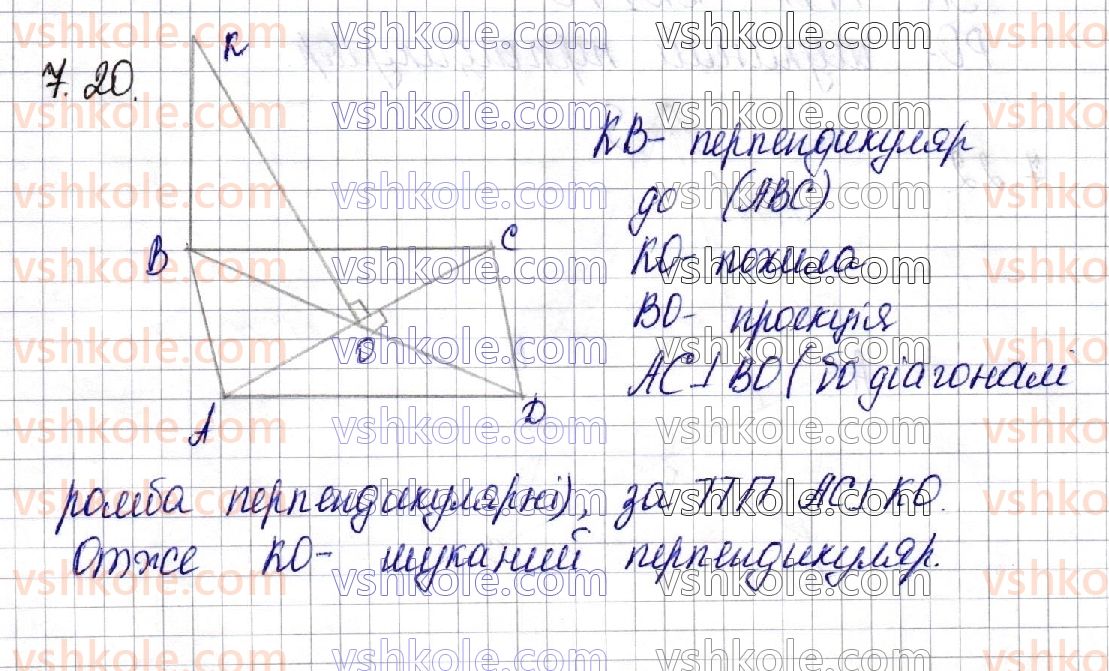 7.20.
K
B
C
O
A
D
KB- перпендикуляр
до (ABC)
KO- похила
BO- проекція
AC⊥BO (бо діагоналі
ромба перпендикулярні), за ТТП AC⊥KO.
Отже KO- шуканий перпендикуляр.
vshkole.com